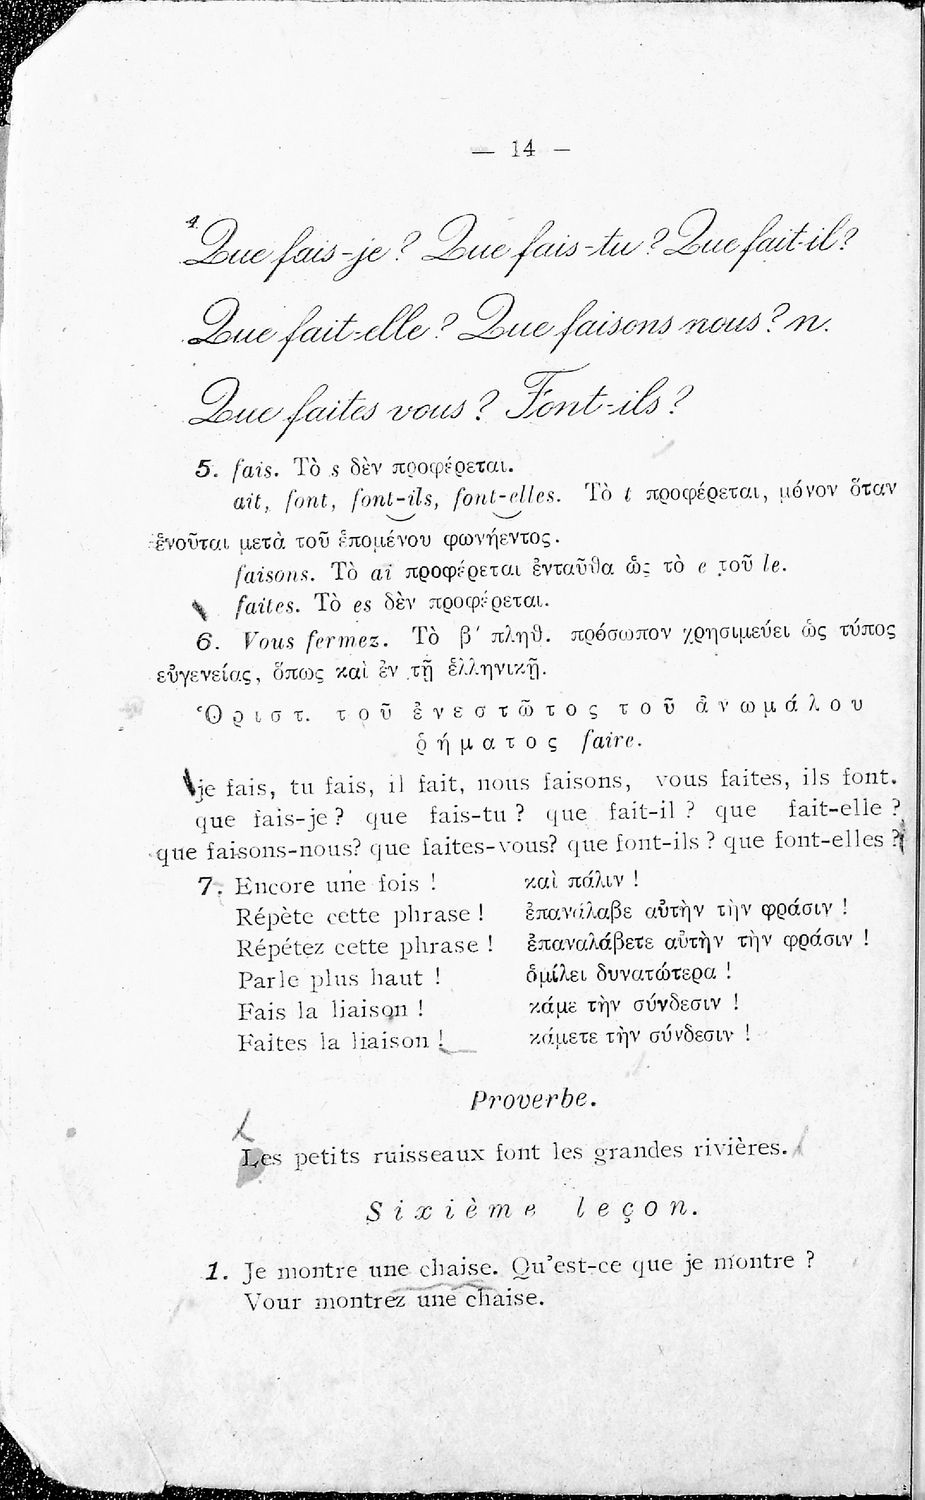 — 14 —
4. Que fais-je? Que fais-tu? Que fait-il?
Que fait-elle? Que faisons nous? n.
Que faites vous? Font-ils?
5. fais. Τὸ s δὲν προφέρεται.
ait, font, font-ils, font-elles. Τὸ t προφέρεται, μόνον ὅταν
ἑνοῦται μετὰ τοῦ ἑπομένου φωνήεντος.
faisons. Τὸ ai προφέρεται ἐνταῦθα ὡς τὸ e τοῦ le.
faites. Τὸ es δὲν προφέρεται.
6. Vous fermez. Τὸ β′ πληθ. πρόσωπον χρησιμεύει ὡς τύπος
εὐγενείας, ὅπως καὶ ἐν τῇ ἑλληνικῇ.
Ὁριστ. τοῦ ἐνεστῶτος τοῦ ἀνωμάλου
ῥήματος faire.
je fais, tu fais, il fait, nous faisons, vous faites, ils font.
que fais-je? que fais-tu? que fait-il? que fait-elle?
que faisons-nous? que faites-vous? que font-ils? que font-elles?
7. Encore une fois! καὶ πάλιν!
Répète cette phrase! ἐπανάλαβε αὐτὴν τὴν φράσιν!
Répétez cette phrase! ἐπαναλάβετε αὐτὴν τὴν φράσιν!
Parle plus haut! ὁμίλει δυνατώτερα!
Fais la liaison! κάμε τὴν σύνδεσιν!
Faites la liaison! κάμετε τὴν σύνδεσιν!
Proverbe.
Les petits ruisseaux font les grandes rivières.
Sixième leçon.
1. Je montre une chaise. Qu'est-ce que je montre?
Vour montrez une chaise.